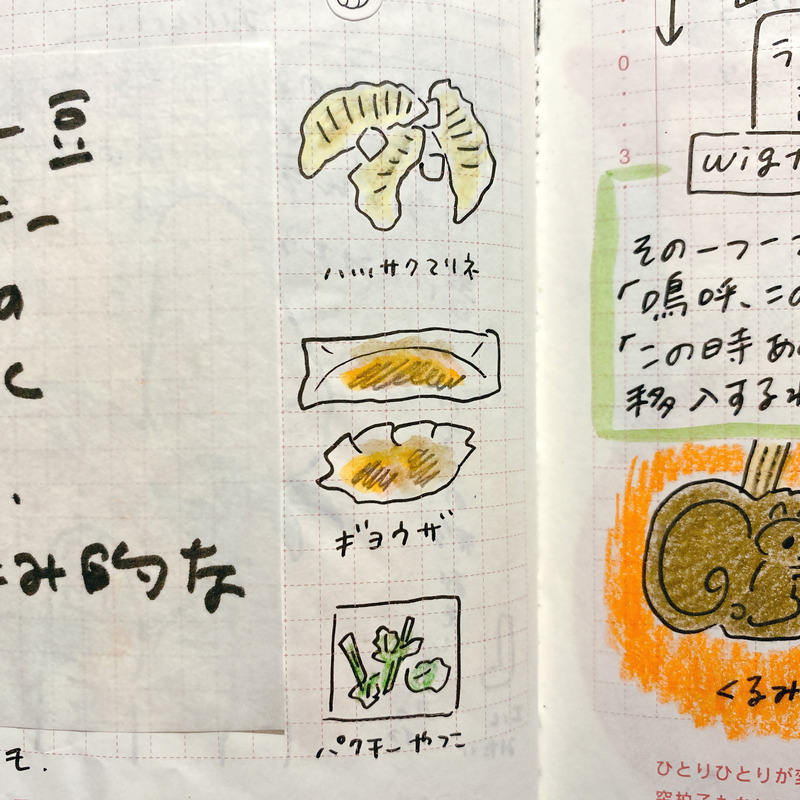 豆
み的な
も.
ハッサクマリネ
ギョウザ
パクチーやっこ
0
3
ラ
wig
その一つ一
「嗚呼、この
「この時あ
移入する
くるみ
ひとりひとりが